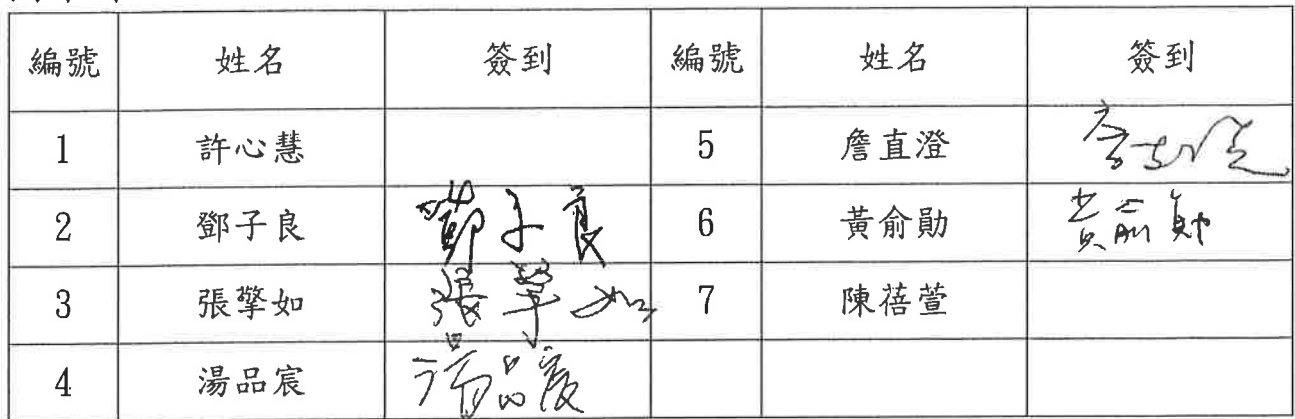 編號 姓名 簽到 編號 姓名 簽到
1 許心慧 5 詹直澄 詹直澄
2 鄧子良 鄧子良 6 黃俞勛 黃俞勛
3 張擎如 張擎如 7 陳蓓萱
4 湯品宸 湯品宸